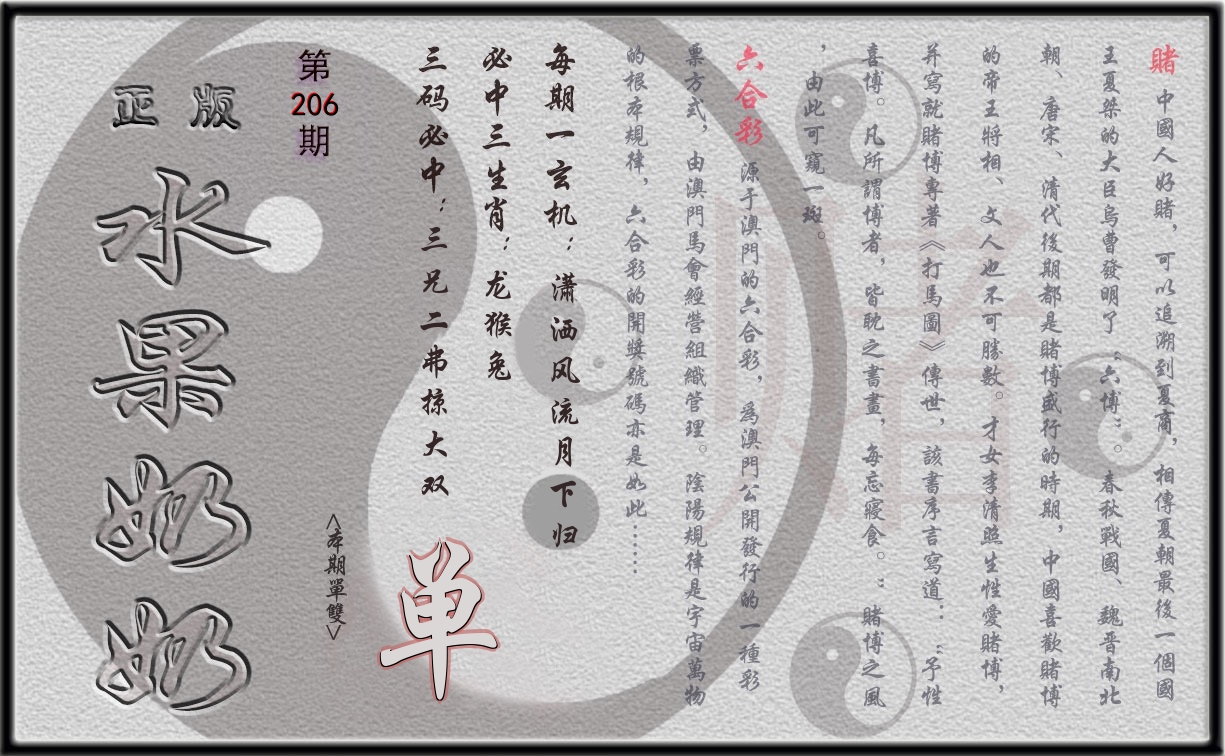 賭 中國人好賭，可以追溯到夏商，相傳夏朝最後一個國
王夏桀的大臣烏曹發明了“六博”。春秋戰國、魏晋南北
朝、唐宋、清代後期都是賭博盛行的時期，中國喜歡賭博
的帝王將相、文人也不可勝數。才女李清照生性愛賭博，
并寫就賭博專著《打馬圖》傳世，該書序言寫道：“予性
喜博。凡所謂博者，皆耽之書畫，每忘寢食。”賭博之風
，由此可窺一斑。
六合彩 源于澳門的六合彩，爲澳門公開發行的一種彩
票方式，由澳門馬會經營組織管理。陰陽規律是宇宙萬物
的根本規律，六合彩的開獎號碼亦是如此……
每期一玄机：潇洒风流月下归
必中三生肖：龙猴兔
三码必中：三兄二弗掠大双
单
<本期單雙>
第206期
正版
水果奶奶
賭